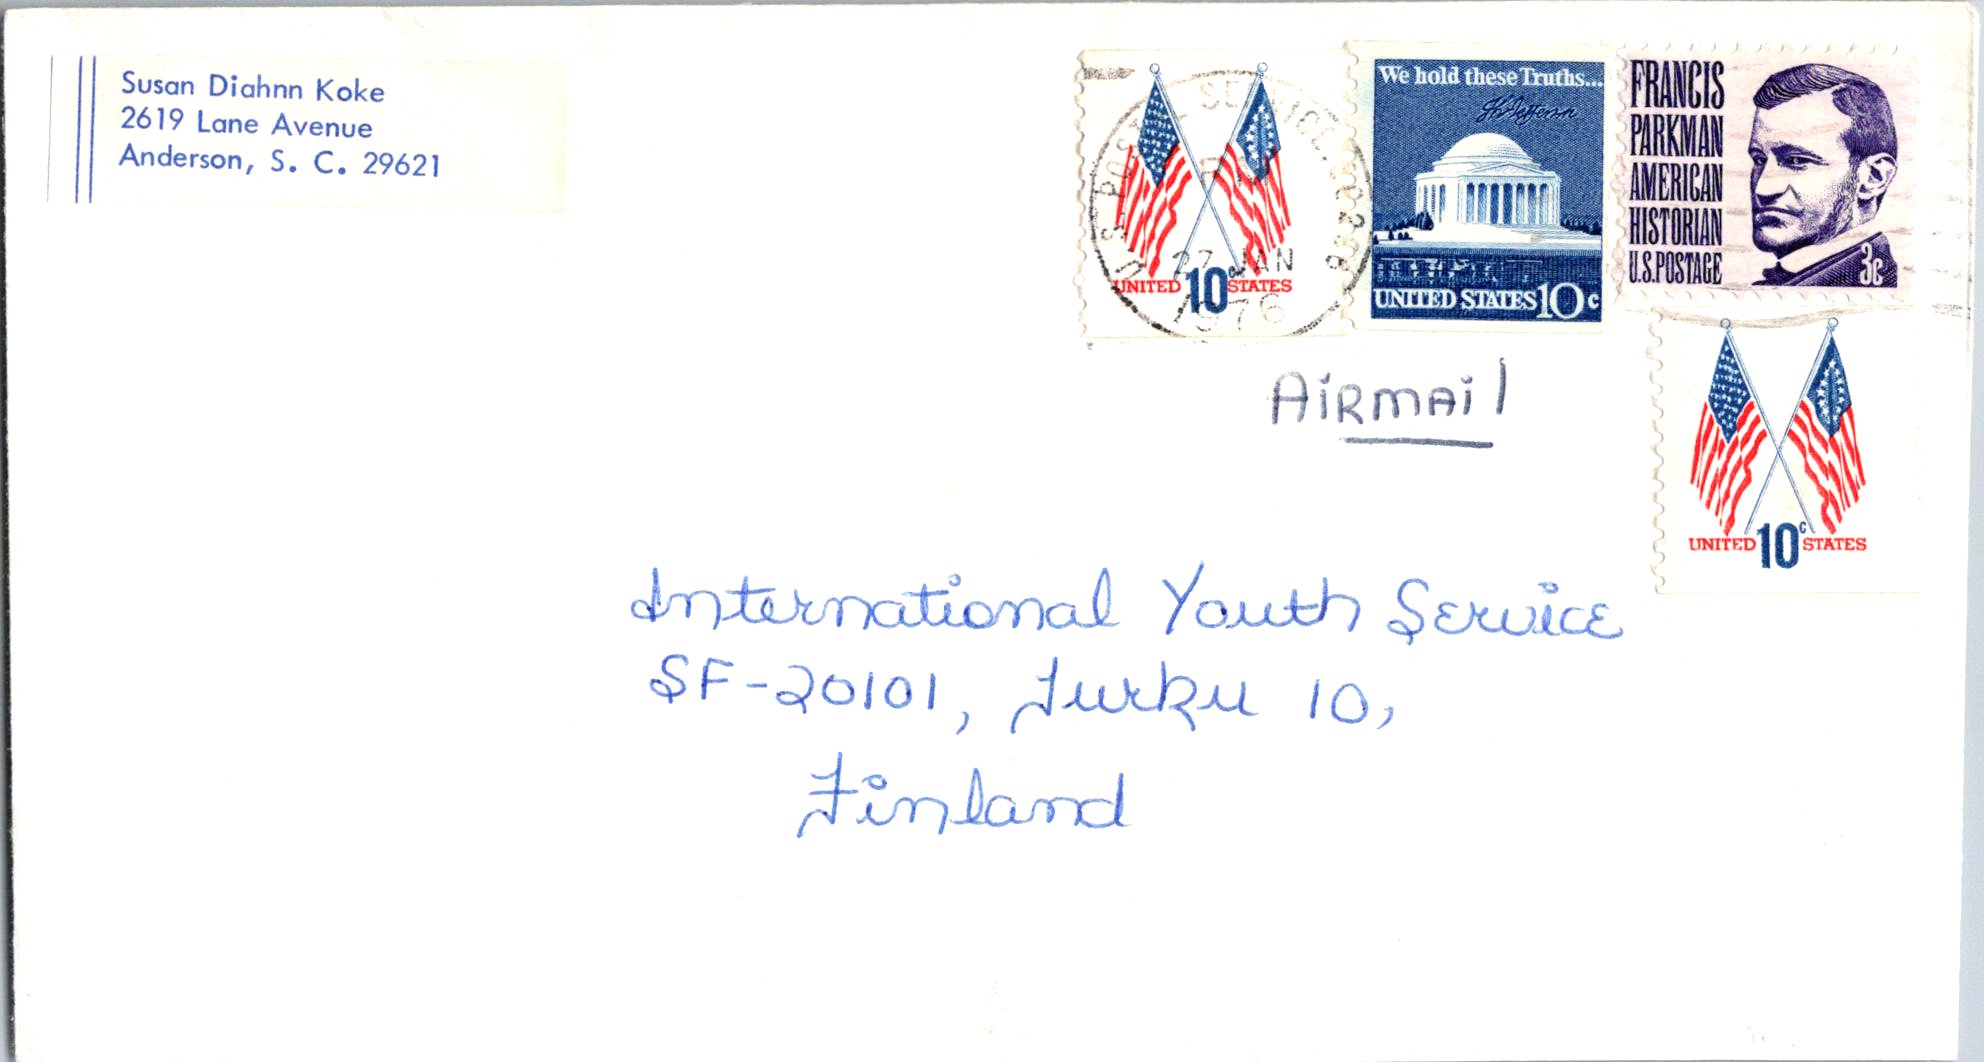 Susan Diahnn Koke
2619 Lane Avenue
Anderson, S. C. 29621
U.S. POSTAL SERVICE
27 JAN
1976
UNITED 10c STATES
We hold these Truths...
Th Jefferson
UNITED STATES 10c
FRANCIS
PARKMAN
AMERICAN
HISTORIAN
U.S.POSTAGE
3c
UNITED 10c STATES
AiRmAil
International Youth Service
SF-20101, Turku 10,
Finland